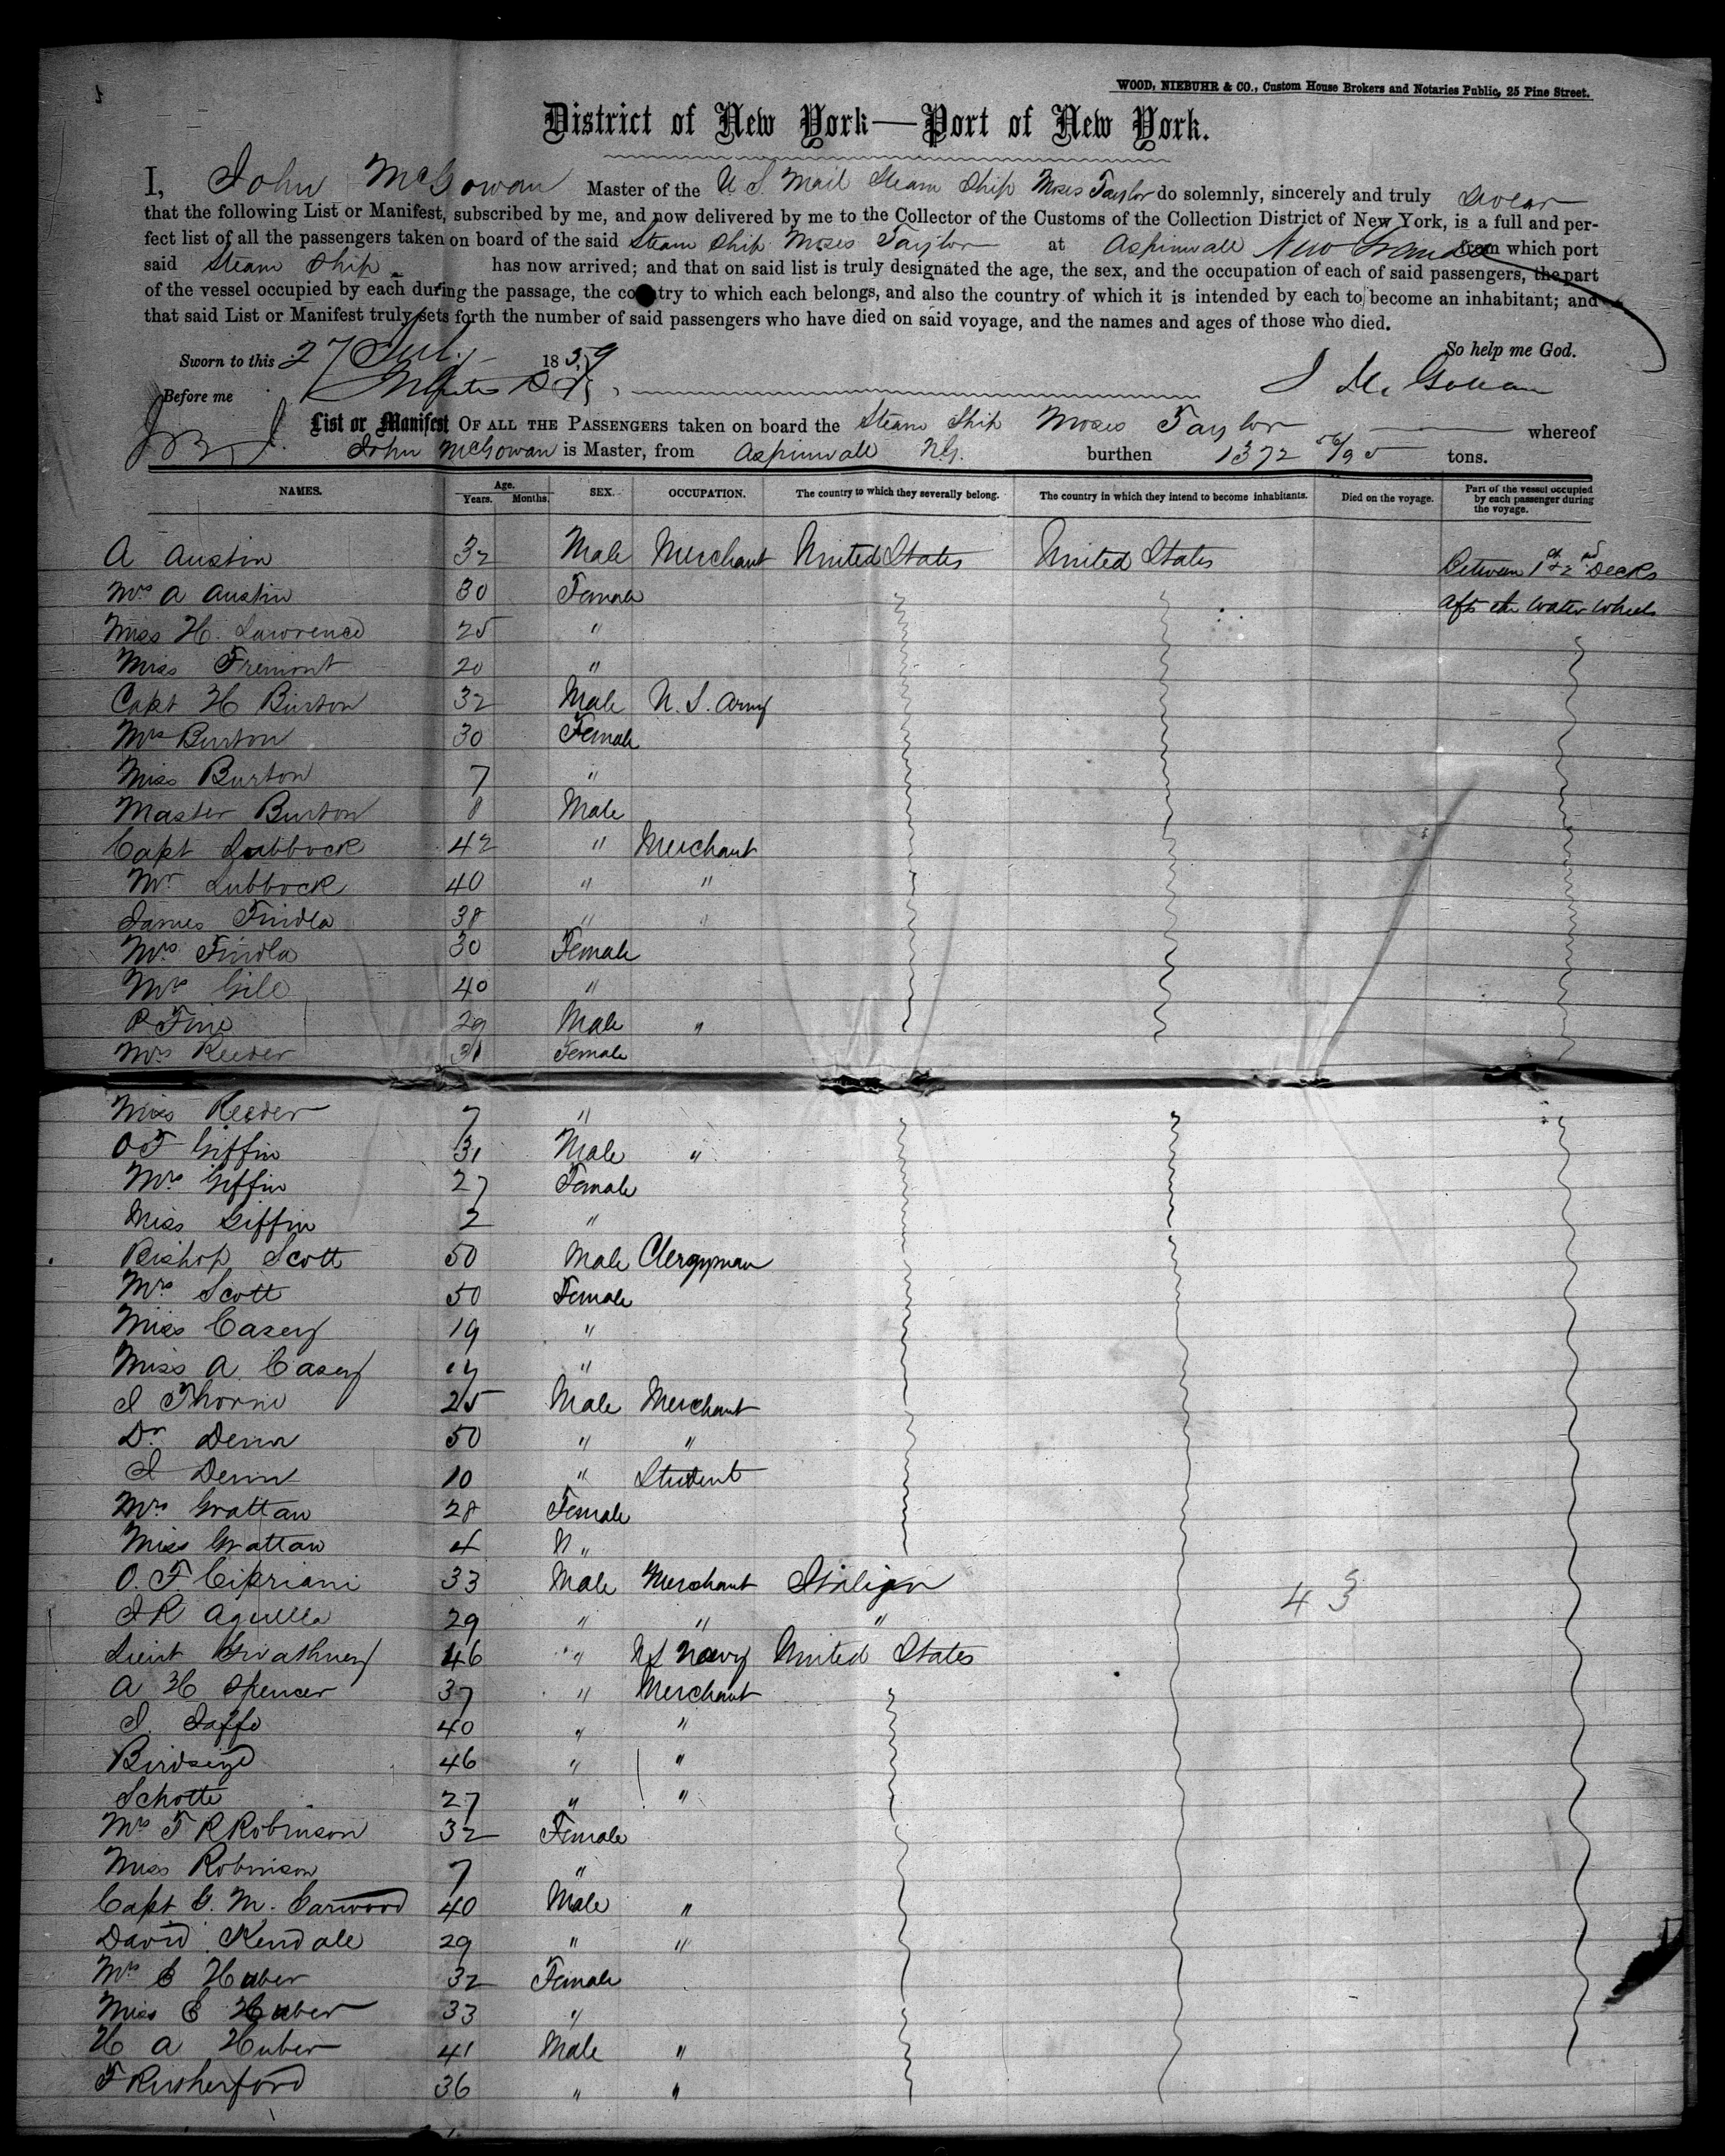 WOOD, NIEBUHR & CO., Custom House Brokers and Notaries Public, 25 Pine Street.
District of New York—Port of New York.
I, John McGowan Master of the U S. Mail Steam Ship Moses Taylor do solemnly, sincerely and truly swear
that the following List or Manifest, subscribed by me, and now delivered by me to the Collector of the Customs of the Collection District of New York, is a full and per-
fect list of all the passengers taken on board of the said Steam Ship Moses Taylor at Aspinwall New Granada from which port
said Steam Ship has now arrived; and that on said list is truly designated the age, the sex, and the occupation of each of said passengers, the part
of the vessel occupied by each during the passage, the country to which each belongs, and also the country of which it is intended by each to become an inhabitant; and
that said List or Manifest truly sets forth the number of said passengers who have died on said voyage, and the names and ages of those who died.
Sworn to this 27 July 1859 So help me God.
Before me J McGowan
List or Manifest OF ALL THE PASSENGERS taken on board the Steam Ship Moses Taylor whereof
John McGowan is Master, from Aspinwall N.G. burthen 1372 56/95 tons.
NAMES. Age. Years. Months. SEX. OCCUPATION. The country to which they severally belong. The country in which they intend to become inhabitants. Died on the voyage. Part of the vessel occupied by each passenger during the voyage.
A Austin 32 Male Merchant United States United States Between 1st & 2nd Decks
Mrs A Austin 30 Female aft the water wheels
Miss H. Lawrence 25 "
Miss Fremont 20 "
Capt H Burton 32 Male U. S. Army
Mrs Burton 30 Female
Miss Burton 7 "
Master Burton 8 Male
Capt Lubbock 42 " Merchant
Mr Lubbock 40 " "
James Findla 38 " "
Mrs Findla 30 Female
Mrs Gile 40 "
P Fine 29 Male "
Mrs Reeder 31 Female
Miss Reeder 7 "
O F Giffin 31 Male "
Mrs Giffin 27 Female
Miss Giffin 2 "
Bishop Scott 50 Male Clergyman
Mrs Scott 50 Female
Miss Casey 19 "
Miss A. Casey "
J Thorne 25 Male Merchant
Dr 50 " "
J 10 " Student
Mrs Grattan 28 Female
Miss Grattan 4 "
O. F Cipriani 33 Male Merchant Italian
J R Aguella 29 " " "
Lieut Gwathney 46 " US Navy United States
A H Spencer 37 " Merchant
J. Jaffe 40 " "
Birdseye 46 " "
Schotte 27 " "
Mrs F R Robinson 32 Female
Miss Robinson 7 "
Capt G. M. Garwood 40 Male "
David Kendale 29 " "
Mrs C Huber 32 Female
Miss C Huber 33 "
H A Huber 41 Male "
F Rutherford 36 " "
43